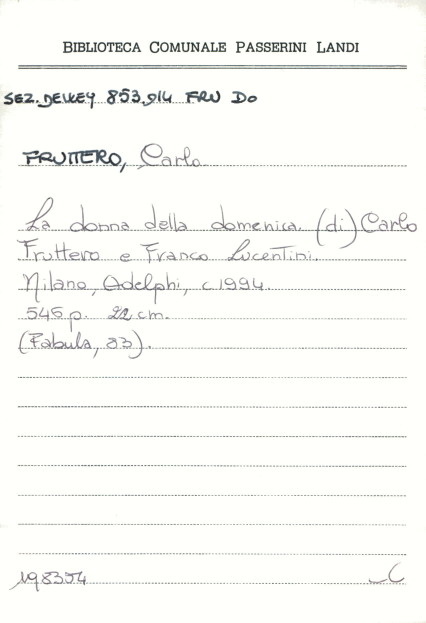 BIBLIOTECA COMUNALE PASSERINI LANDI
SEZ. DEWEY 853.914 FRU Do
FRUTTERO, Carlo
La donna della domenica. (di) Carlo
Fruttero e Franco Lucentini.
Milano, Adelphi, c1994.
545 p. 22 cm.
(Fabula, 83).
198354